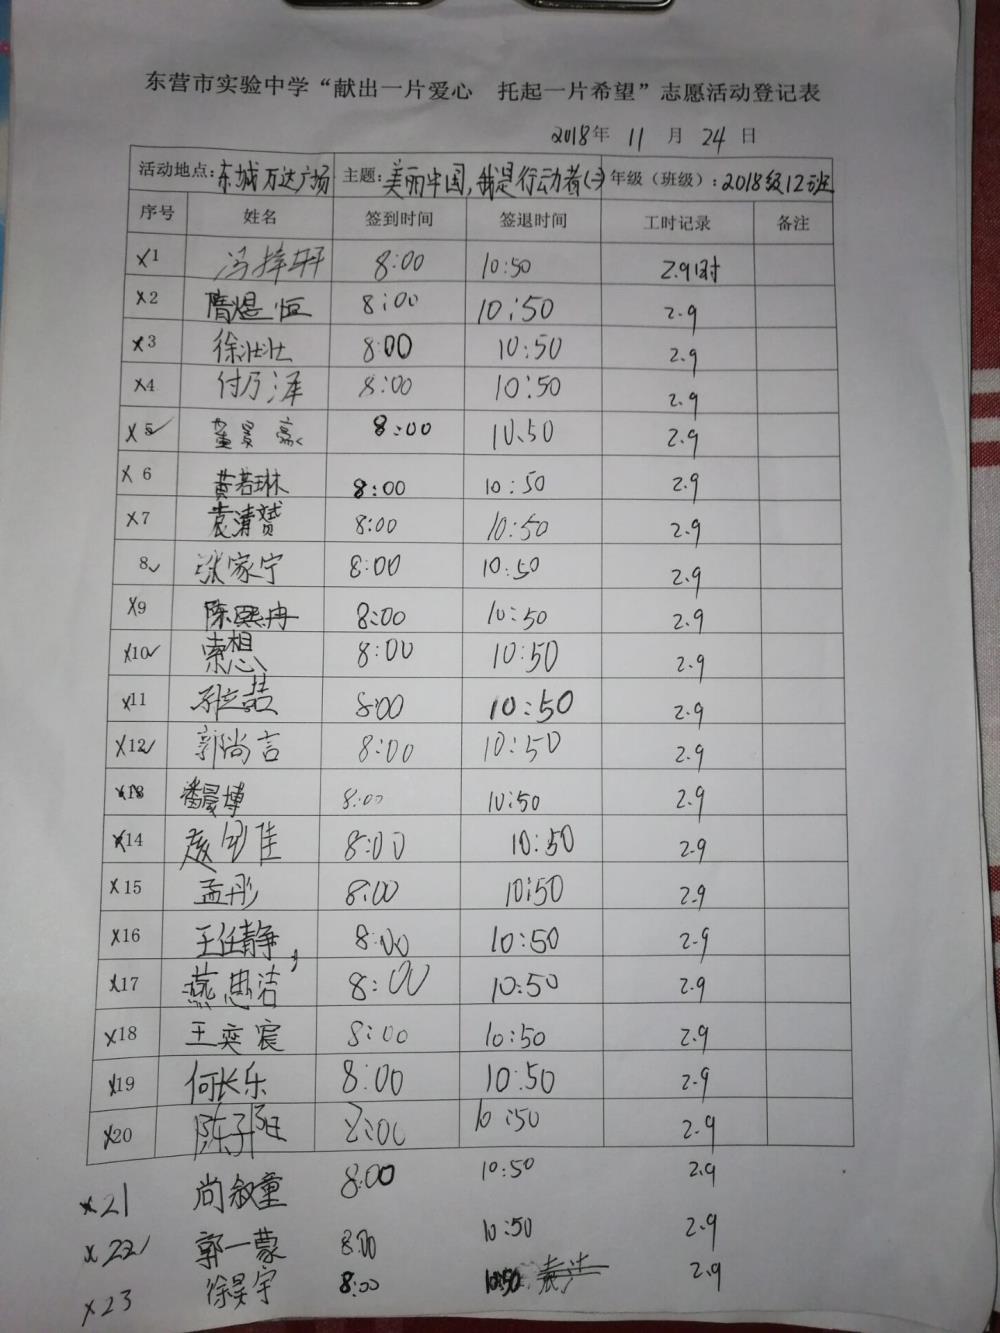 东营市实验中学“献出一片爱心 托起一片希望”志愿活动登记表
2018年 11 月 24 日
活动地点:东城万达广场 主题:美丽中国,我是行动者(二) 年级(班级):2018级12班
序号 姓名 签到时间 签退时间 工时记录 备注
x1 冯梓轩 8:00 10:50 2.9时
x2 隋煜恒 8:00 10:50 2.9
x3 徐壮壮 8:00 10:50 2.9
x4 付乃泽 8:00 10:50 2.9
x5✓ 董昊豪 8:00 10:50 2.9
x6 黄若琳 8:00 10:50 2.9
x7 袁清赟 8:00 10:50 2.9
8✓ 张家宁 8:00 10:50 2.9
x9 陈熙冉 8:00 10:50 2.9
x10✓ 索想 8:00 10:50 2.9
x11 8:00 10:50 2.9
x12✓ 郭尚言 8:00 10:50 2.9
x13 潘晨博 8:00 10:50 2.9
x14 8:00 10:50 2.9
x15 孟彤 8:00 10:50 2.9
x16 王任静 8:00 10:50 2.9
x17 燕思洁 8:00 10:50 2.9
x18 王奕宸 8:00 10:50 2.9
x19 何长乐 8:00 10:50 2.9
x20 陈子阳 8:00 10:50 2.9
x21 尚叙童 8:00 10:50 2.9
x22✓ 郭一蒙 8:00 10:50 2.9
x23 徐昊宇 8:00 10:50 2.9